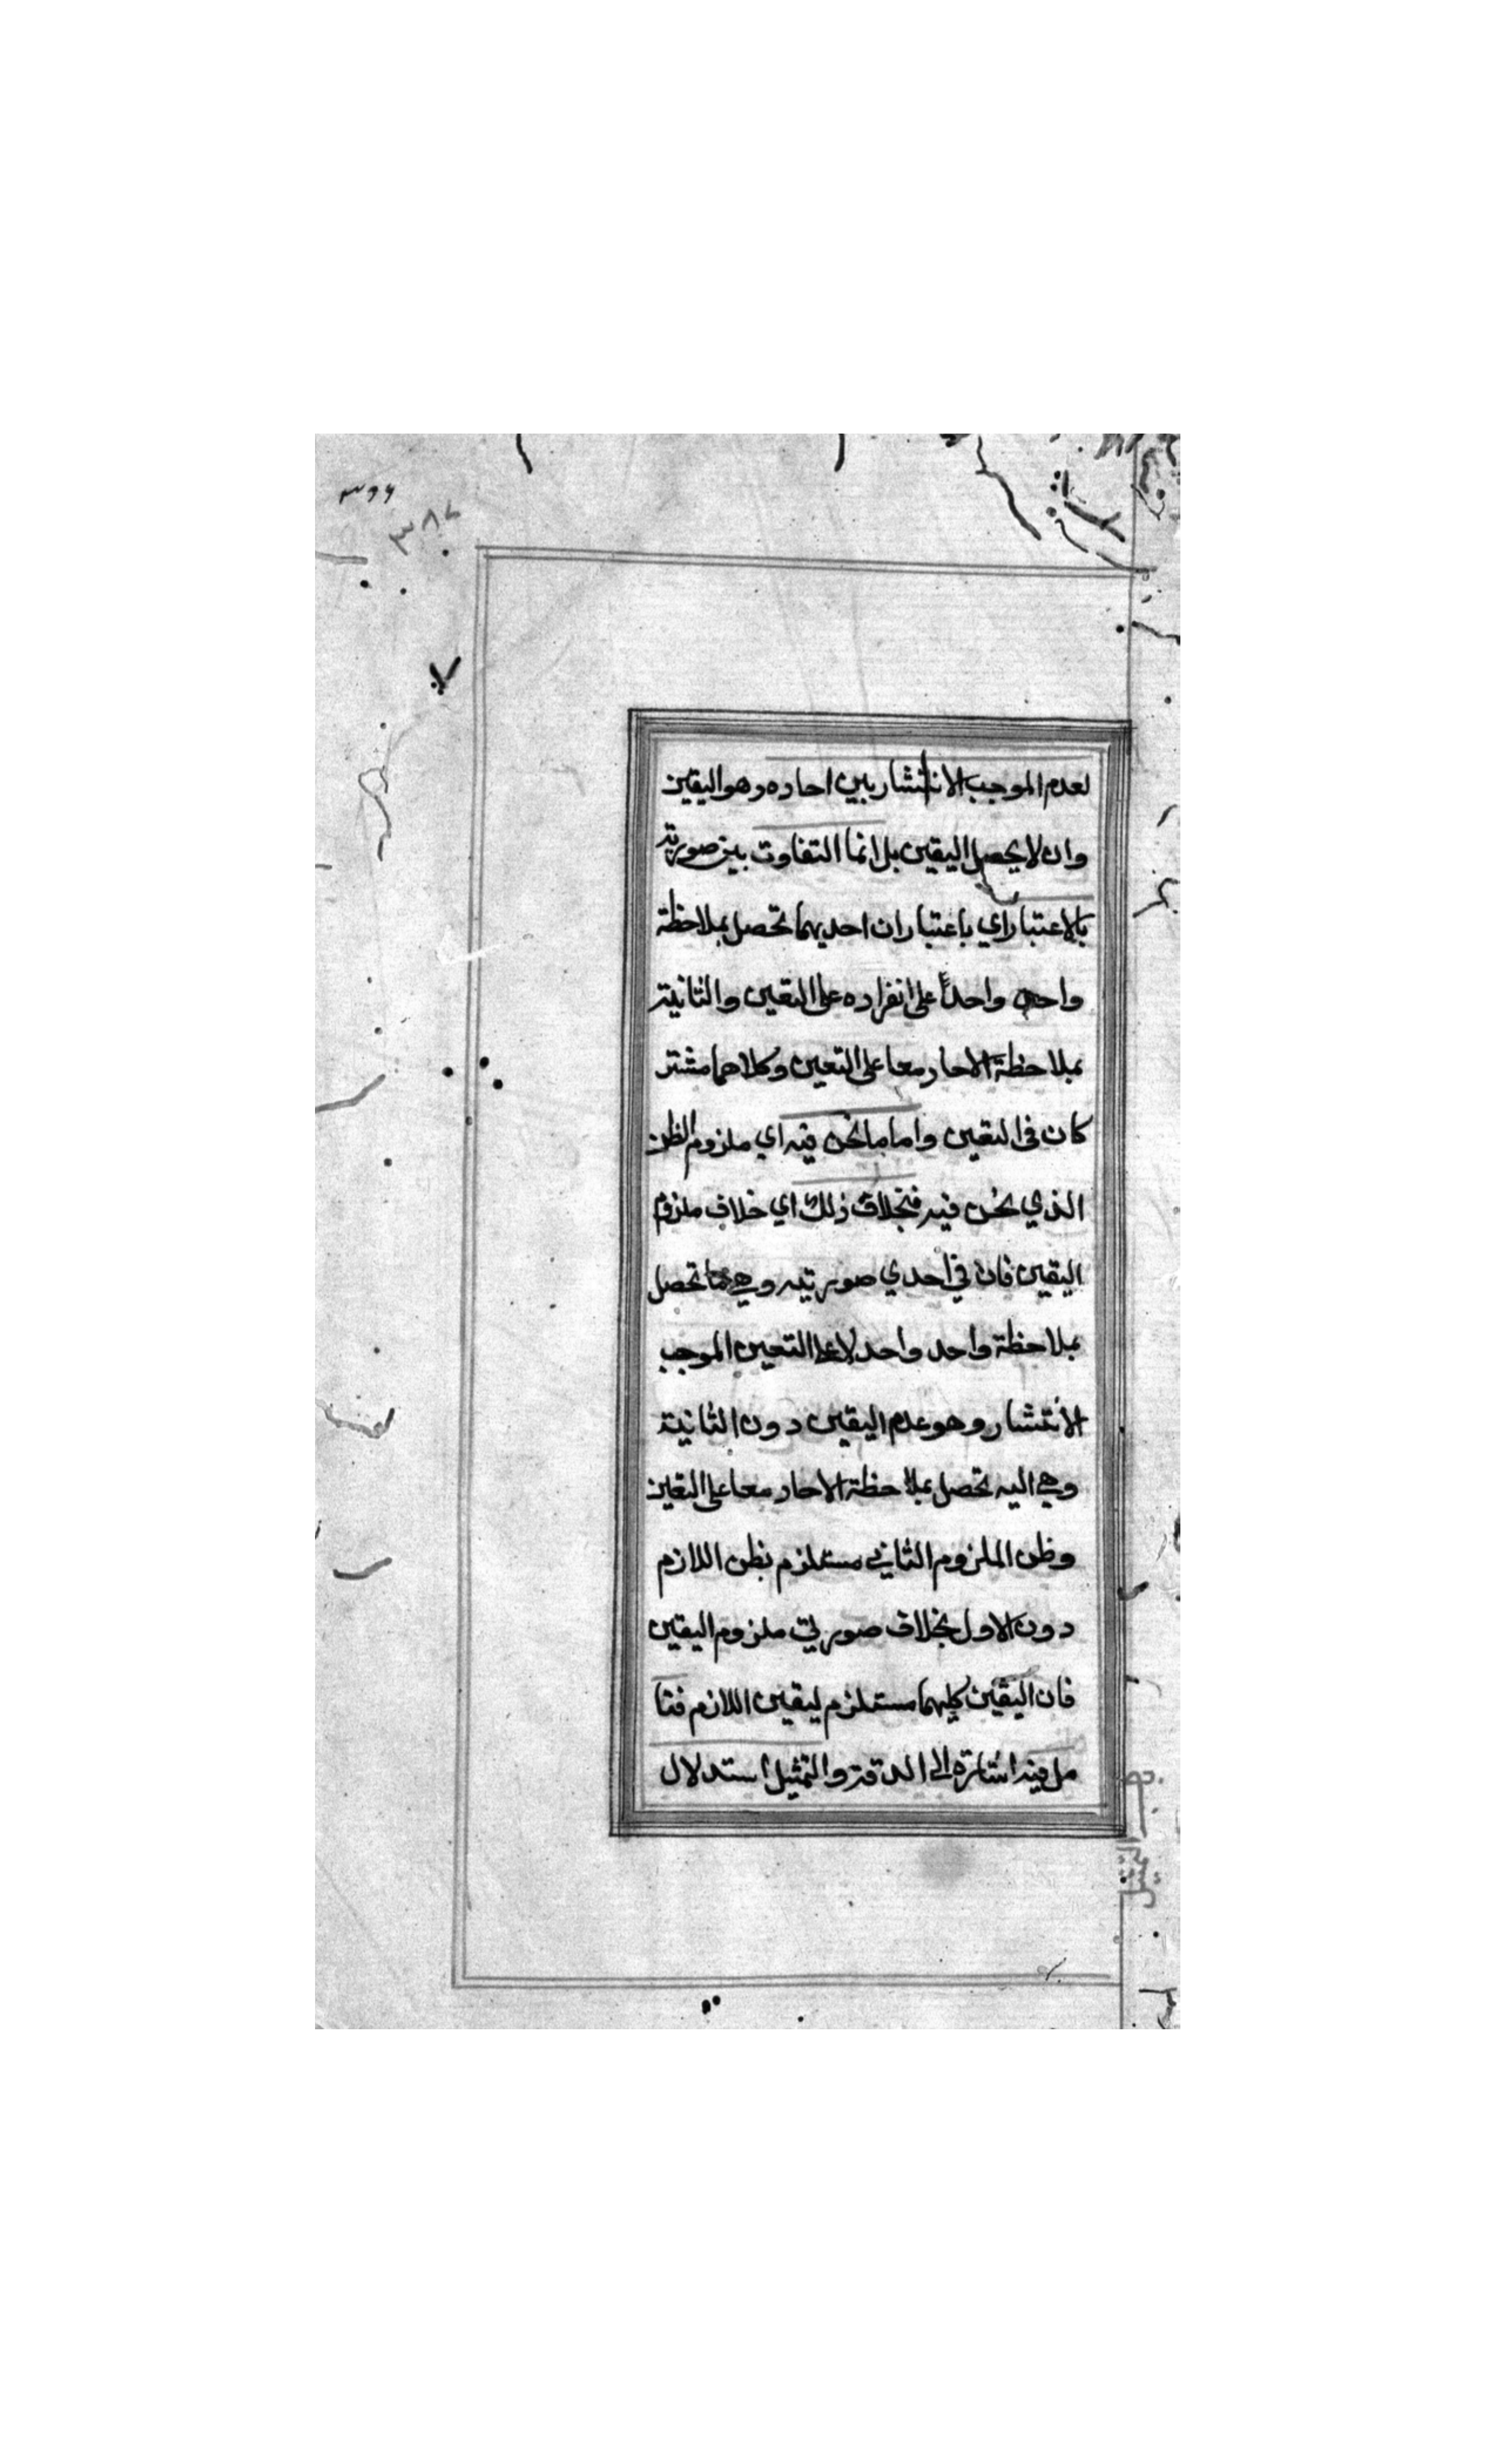 ٣٦٦
٣٨٧
لعدم الموجب الانتشار بين احاده وهو اليقين
وان لا يحصل اليقين بل انما التفاوت بين صورتيه
بالاعتبار اي باعتبار ان احديهما تحصل بملاحظة
واحد واحداً على انفراده على التعين والثانية
بملاحظة الاحاد معا على التعين وكلاهما مشتر
كان في التعين واما ما نحن فيه اي ملزوم الظن
الذي نحن فيه فبخلاف ذلك اي خلاف ملزوم
اليقين فان في احدي صورتيه وهي ما تحصل
بملاحظة واحد واحد لا على التعين الموجب
الانتشار وهو عدم اليقين دون الثانية
وهي اليه تحصل بملاحظة الاحاد معا على التعين
وظن الملزوم الثاني مستلزم بظن اللازم
دون الاول بخلاف صورتي ملزوم اليقين
فان اليقين كليهما مستلزم ليقين اللازم فتا
مل فيه اشارة الى الدقة والتمثيل استدلال
التمثيل